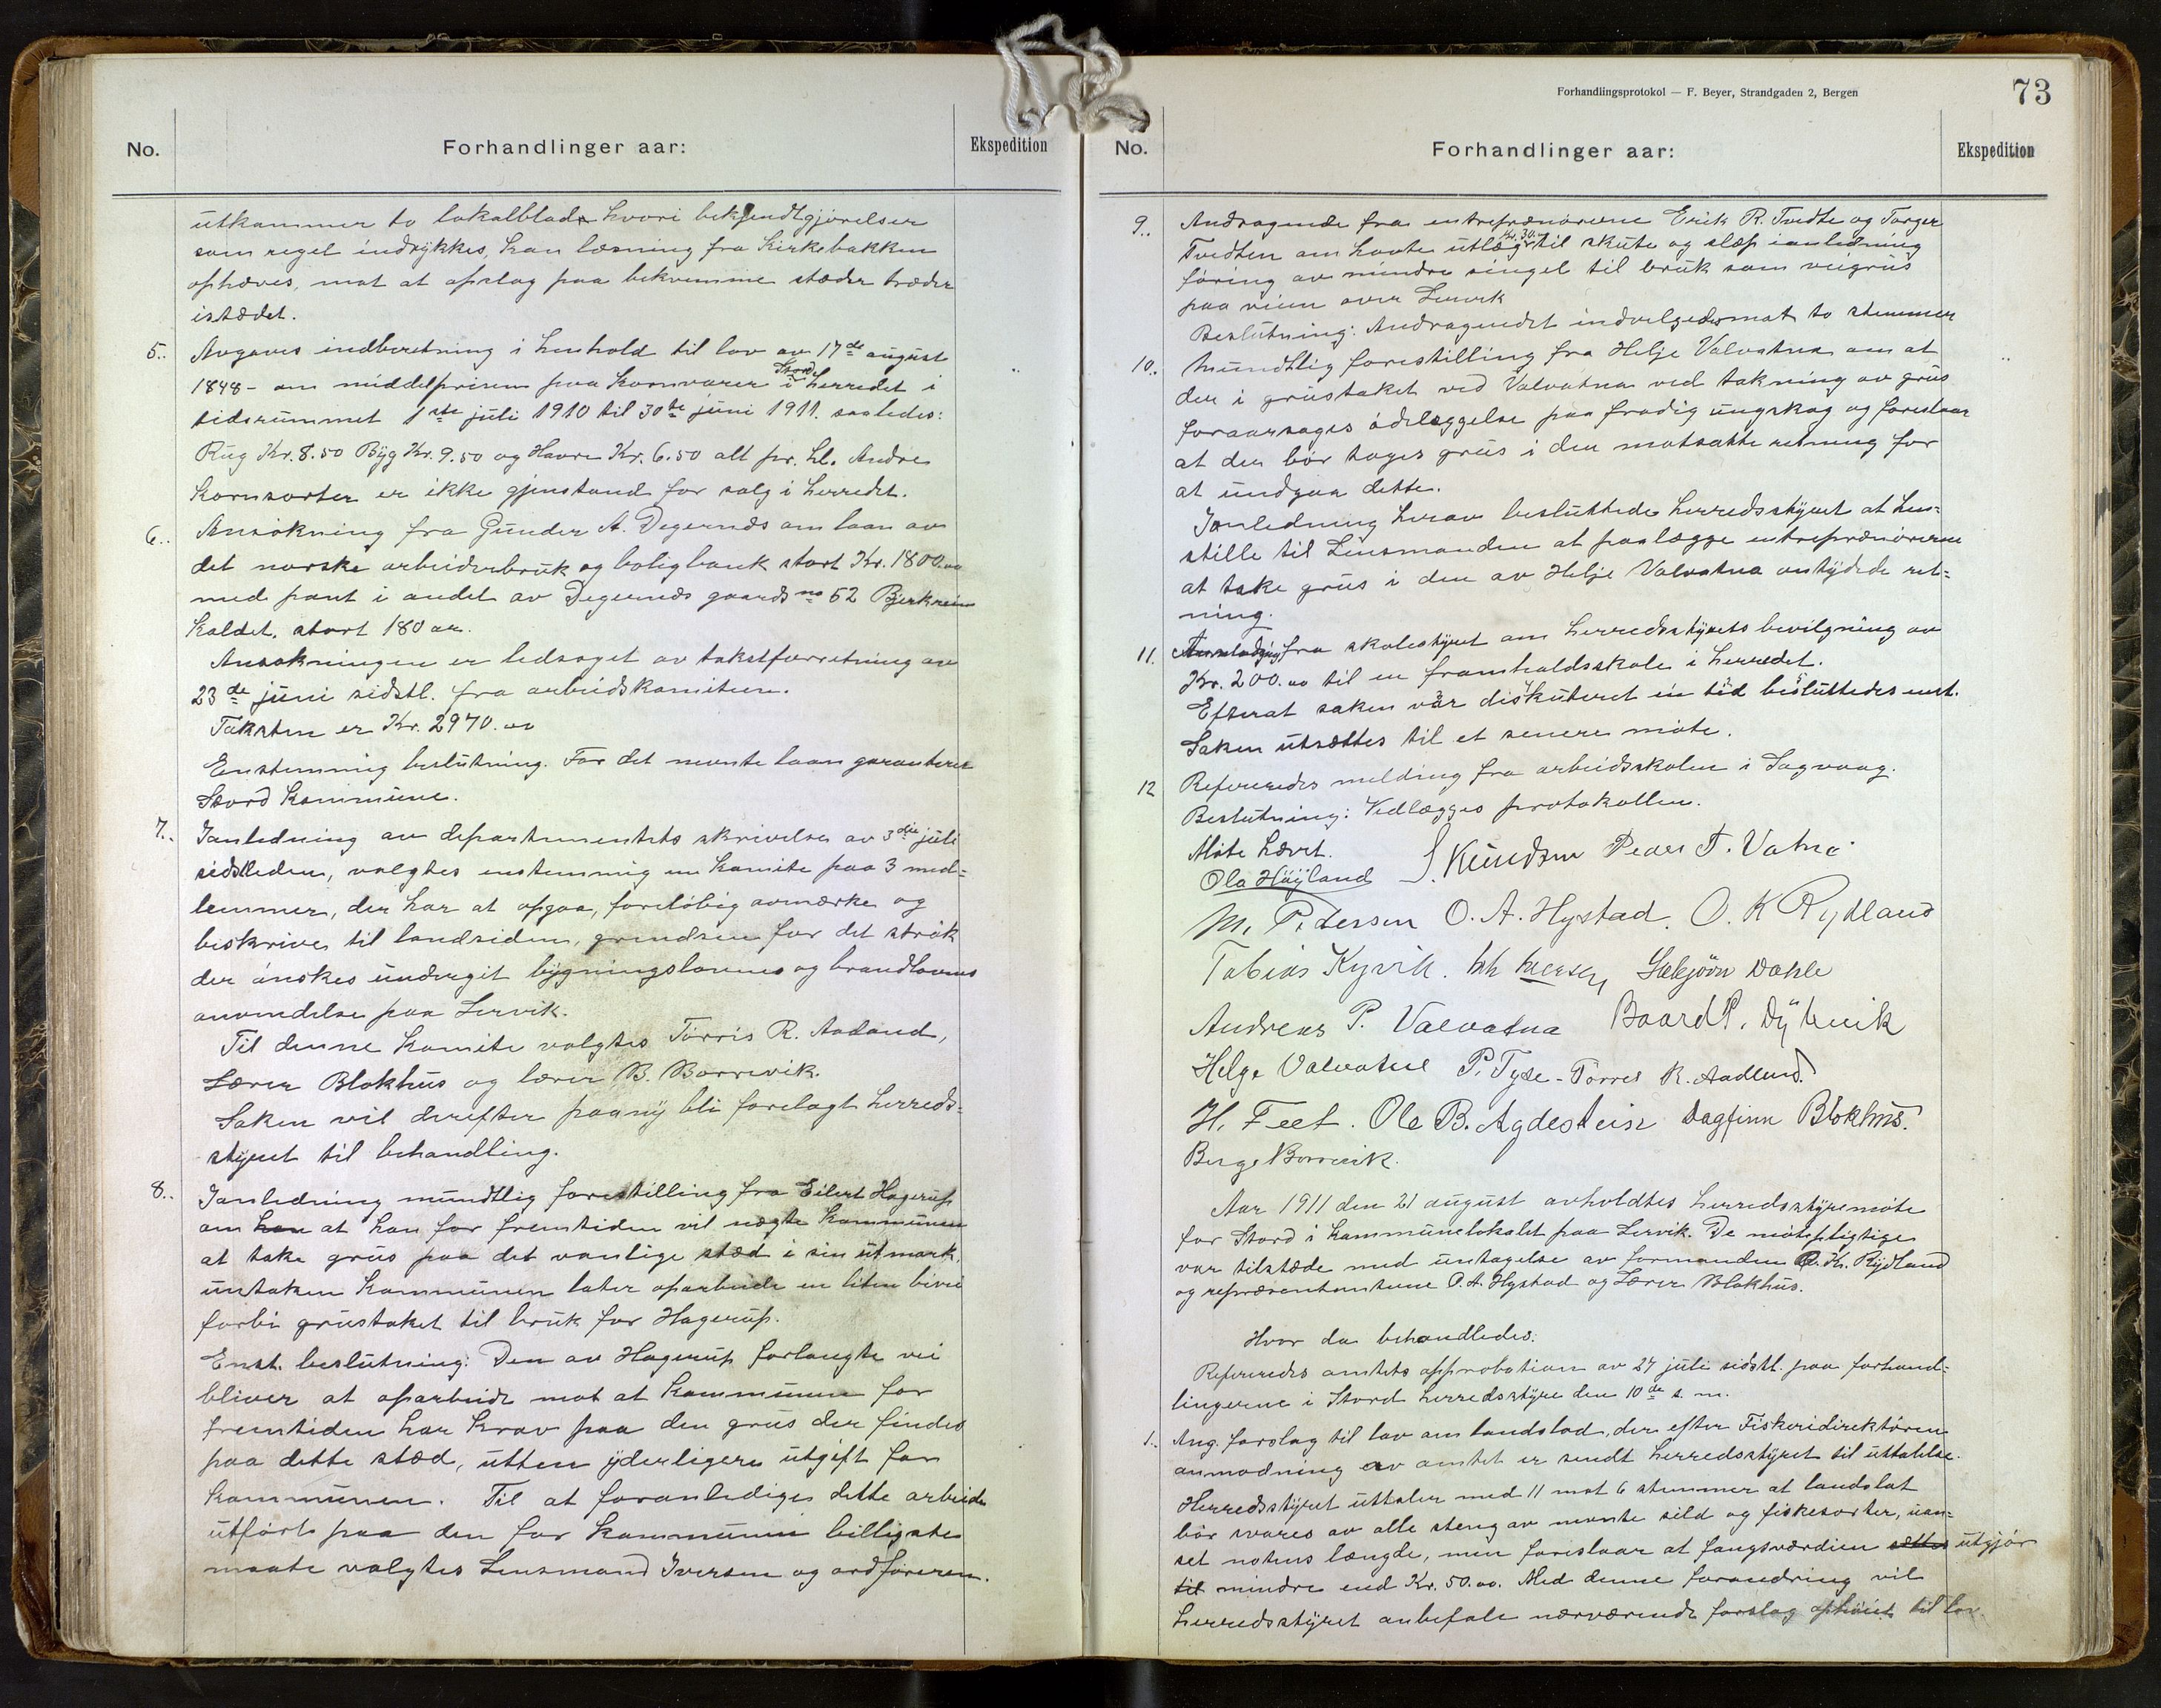 No.
Forhandlinger aar:
Ekspedition
utkommer to lokalblade hvori bekjendtgjørelser
som regel indrykkes, kan læsning fra Kirkebakken
ophæves, mot at opslag paa bekvemme stæder træder
istædet.
5.. Avgaves indberetning i henhold til lov av 17de august
1848 - om middelprisen paa kornvarer i Stord herredet i
tidsrummet 1ste juli 1910 til 30te juni 1911. saaledes:
Rug Kr. 8.50 Byg Kr. 9.50 og Havre Kr. 6.50 alt pr. hl. Andre
kornsorter er ikke gjenstand for salg i herredet.
6.. Ansøkning fra Gunder A. Degernæs om laan av
det norske arbeiderbruk og boligbank stort Kr. 1800.00
med pant i andel av Degernæs gaards no 62 Bjerkreim
kaldet, stort 180 ar.
Ansøkningen er ledsaget av takstforretning av
23de juni sidstl. fra arbeidskomiteen.
Taksten er Kr. 2970.00
Enstemmig beslutning. For det nevnte laan garanterer
Stord kommune.
7.. Ianledning av departementets skrivelse av 3die juli
sidstleden, valgtes enstemmig en komite paa 3 med=
lemmer, der har at opgaa, foreløbig avmerke og
beskrive til landsiden, grendsen for det strøk
der ønskes undergit bygningslovens og brandlovens
anvendelse paa Lervik.
Til denne komite valgtes Tørris R. Aadland,
Lærer Blokhus og lærer B. Borrevik.
Saken vil derefter paany bli forelagt herreds=
styret til behandling.
8.. Ianledning mundtlig forestilling fra Eilert Hagerup
om han at han for fremtiden vil nægte kommunen
at take grus paa det vanlige stæd i sin utmark,
untaken kommunen later oparbeide en liten bivei
forbi grustaket til bruk for Hagerup.
Enst. beslutning: Den av Hagerup forlangte vei
bliver at oparbeide mot at kommunen for
fremtiden har krav paa den grus der findes
paa dette stæd, utten yderligere utgift for
kommunen. Til at foranledige dette arbeide
utført paa den for kommunen billigste
maate valgtes Lensmand Iversen og ordføreren.
Forhandlingsprotokol — F. Beyer, Strandgaden 2, Bergen
73
No.
Forhandlinger aar:
Ekspedition
9.. Andragende fra entreprenørerne Erik R. Tvedte og Torger
Tvedten om havte utlæg Kr. 30.00 til skute og slæp ianledning
føring av mindre singel til bruk som veigrus
paa veien over Lervik
Beslutning: Andragendet indvilgedes mot to stemmer
10.. Mundtlig forestilling fra Helje Valvatna om at
der i grustaket ved Valvatna ved takning av grus
foraarsages ødelæggelse paa frodig ungskog og foreslaar
at der bør tages grus i den motsatte retning for
at undgaa dette.
Ianledning herav besluttede herredsstyret at hen=
stille til Lensmanden at paalægge entreprenørerne
at take grus i den av Helje Valvatna antydede ret=
ning.
11. fra skolestyret om herredsstyrets bevilgning av
Kr. 200.00 til en framhaldsskole i herredet.
Efterat saken var diskuteret en tid besluttedes enst.
Saken utsættes til et senere møte.
12 Refereredes melding fra arbeidsskolen i Sagvaag.
Beslutning: Vedlægges protokollen.
Møte hævet.
Ola Høyland S. Knudsen Peder T. Vatna
M. Pedersen O. A. Hystad. O. K Rydland
Tobias Kyvik. Sæbjørn Dahle
Andreas P. Valvatna Baard P. Dybevik
Helge Valvatne P. Tyse - Tørres R. Aadland.
H. Feet. Ole B. Agdestein Dagfinn Blokhus.
Berge Borrevik.
Aar 1911 den 21 august avholdtes herredsstyremøte
for Stord i kommunelokalet paa Lervik. De møtepligtige
var tilstæde med untagelse av formanden O. K. Rydland
og repræsentantene O. A. Hystad og Lærer Blokhus.
Hvor da behandledes:
Refereredes amtets approbation av 27 juli sidstl. paa forhand=
lingerne i Stord herredsstyre den 10de s. m.
1.. Ang. forslag til lov om landslod, der efter Fiskeridirektørens
anmodning av amtet er sendt herredsstyret til uttalelse.
Herredsstyret uttaler med 11 mot 6 stemmer at landslot
bør svares av alle steng av nevnte sild og fiskesorter, uan=
set notens længde, men foreslaar at fangsværdien sættes utgjør
til mindre end Kr. 50.00. Med denne forandring vil
herredsstyret anbefale nærværende forslag ophøiet til lov.